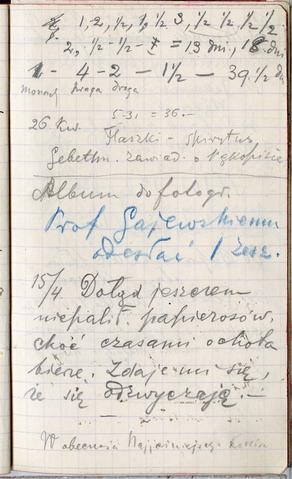 1, 2, ½, 1, ½ 3, ½ ½ ½, ½
2, ½ - ½ - = 13 dni, 18 dni
1 - 4 - 2 - 1½ - 39.½
droga
5-31 = 36.-
26 Kw. Flaszki - spirytus
Gebethn. zawiad. o rękopisie
Album do fotogr.
Prof Gajewskiemu
odesłać 1 zesz.
15/4. Dotąd jeszczem
niepalił papierosów,
choć czasami ochota
bierze. Zdaje mi się,
że się odzwyczaję.-
W obecności Najjaśniejszego